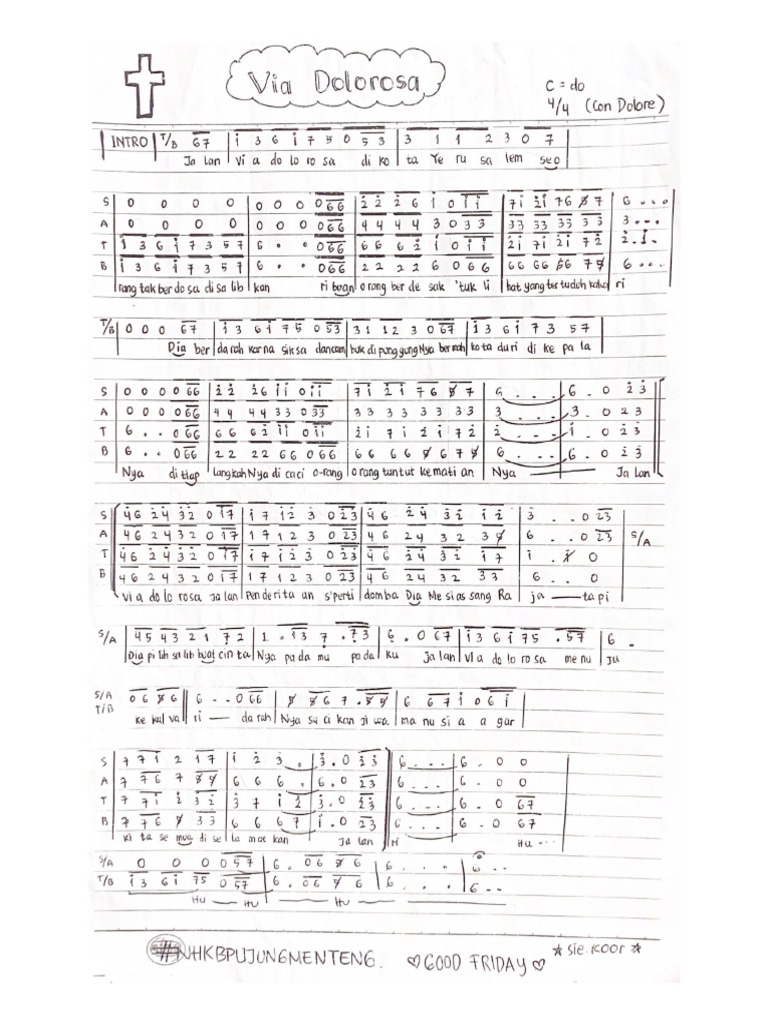 Via Dolorosa
C = do
4/4 (Con Dolore)
INTRO | T/B 67 | i 3 6 i 7 5 0 5 3 | 3 1 1 2 3 0 7
Ja lan Vi a do lo ro sa di ko ta Ye ru sa lem seo
S | 0 0 0 0 | 0 0 0 066 | 2 2 2 6 i 0 i i | 7i 2i 76 5 7 | 6 . . .
A | 0 0 0 0 | 0 0 0 066 | 4 4 4 4 3 0 3 3 | 33 33 33 3 3 | 3 . . .
T | 1 3 6 i 7 3 5 7 | 6 . . 066 | 6 6 6 2 i 0 i i | 2i 7i 2i 7 2
B | 1 3 6 i 7 3 5 7 | 6 . . 066 | 2 2 2 2 6 0 6 6 | 66 66 66 7 5 | 6 . . .
rang tak ber do sa di sa lib kan ri buan orang ber de sak 'tuk li hat yang ter tuduh ri
T/B | 0 0 0 67 | i 3 6 i 7 5 0 5 3 | 3 1 1 2 3 0 67 | i 3 6 i 7 3 5 7
Dia ber darah karna siksa dan cam buk di punggungNya bermah kota duri di ke pa la
S | 0 0 0 066 | 2 2 2 6 i i 0 i i | 7 i 2 i 7 6 5 7 | 6 . . . | 6 . 0 2 3
A | 0 0 0 066 | 4 4 4 4 3 3 0 3 3 | 3 3 3 3 3 3 3 3 | 3 . . . | 3 . 0 2 3
T | 6 . . 066 | 6 6 6 2 i i 0 i i | 2 i 7 i 2 i 7 2 | 2 . . . | i . 0 2 3
B | 6 . . 066 | 2 2 2 2 6 6 0 6 6 | 6 6 6 6 6 6 7 5 | 6 . . . | 6 . 0 2 3
Nya ditiap langkahNya di caci o-rang orang tuntut kematian Nya Ja lan
S | 46 24 32 0 17 | 1 7 1 2 3 0 23 | 4 6 2 4 3 i i 2 | 3 . . 0 23
A | 46 24 32 0 17 | 1 7 1 2 3 0 23 | 4 6 2 4 3 2 3 5 | 6 . . 0 23 | S/A
T | 46 24 32 0 17 | 1 7 1 2 3 0 23 | 4 6 2 4 3 i i 7
B | 46 24 32 0 17 | 1 7 1 2 3 0 23 | 4 6 2 4 3 2 3 3 | 6 . . 0
Via do lo rosa Ja lan Penderita an s'perti domba Dia Mesias sang Ra ja tapi
S/A | 45 43 21 72 | 1 . 13 7 . 73 | 6 . 0 67 | 1 3 6 i 7 5 . 57 | 6 .
Dia pilih salib buat cin ta Nya pada mu pada ku Ja lan via do lo rosa menu Ju
S/A
T/B | 06 56 | 6 . . 066 | 5 56 7 . 55 | 6 6 7 i 0 6 i
ke kal va ri darah Nya su ci kan ji wa ma nu si a a gar
S | 7 7 i 2 i 7 | i 2 3 . | 3 . 0 2 3 | 6 . . . | 6 . 0 0
A | 7 7 6 7 5 5 | 6 6 6 . | 6 . 0 2 3 | 6 . . . | 6 . 0 0
T | 7 7 i i 2 3 2 | 3 7 i 2 | 3 . 0 2 3 | 6 . . . | 6 . 0 67
B | 7 7 6 5 3 3 | 6 6 6 7 | i . 0 2 3 | 6 . . . | 6 . 0 67
ki ta se mua di se la mat kan Ja lan ri Hu ...
S/A | 0 0 0 0 5 7 | 6 . 06 5 6 | 6 . . . | 6 . .
T/B | 1 3 6 i 7 5 0 5 7 | 6 . 06 5 6 | 6 . . . | 6 . .
Hu Hu Hu
#NHKBPUJUNGMENTENG.
♡GOOD FRIDAY♡
*sie.koor*